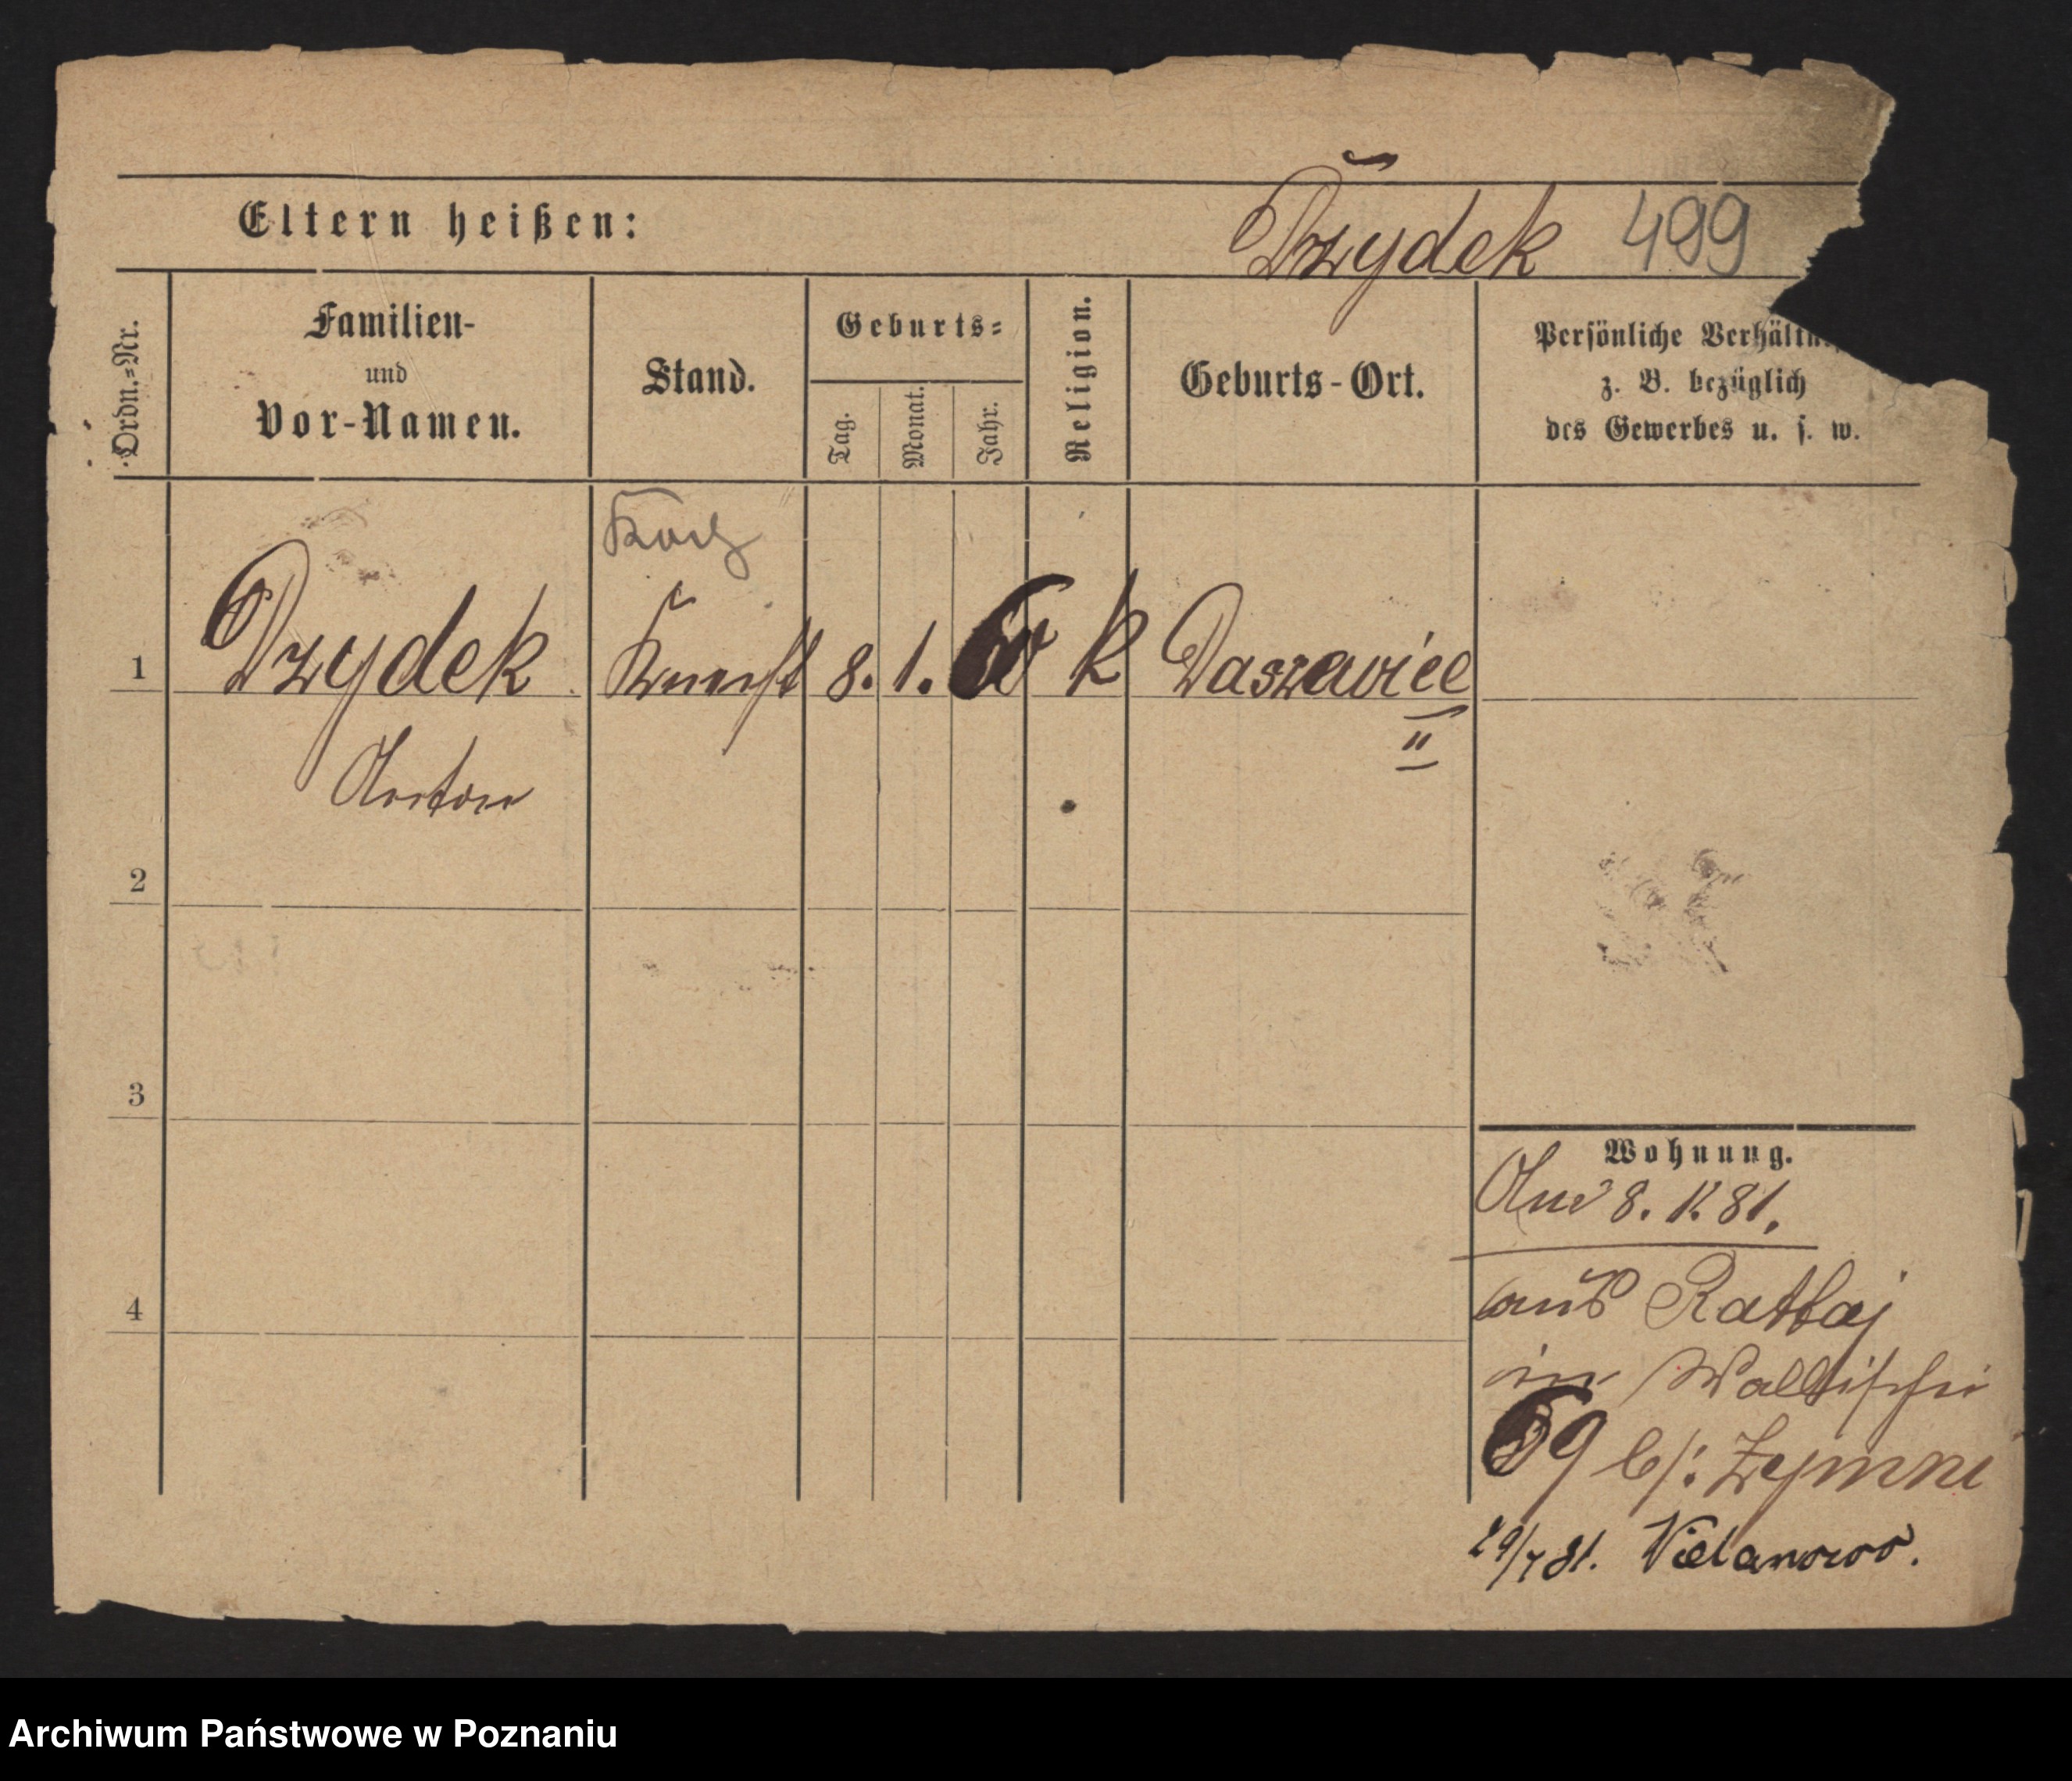 Eltern heißen:
Dzydek 499
Ordn.=Nr.
Familien-
und
Vor-Namen.
Stand.
Geburts=
Tag.
Monat.
Jahr.
Religion.
Geburts-Ort.
Persönliche Verhältn
z. B. bezüglich
des Gewerbes u. s. w.
1 Dzydek 8. 1. 60 K Daszewice
II
Anton
2
3
4
Wohnung.
8. 1. 81.
aus Rattaj
in Wallischei
69 b/: Zymni
29/7 81. Wielanowo.
Archiwum Państwowe w Poznaniu